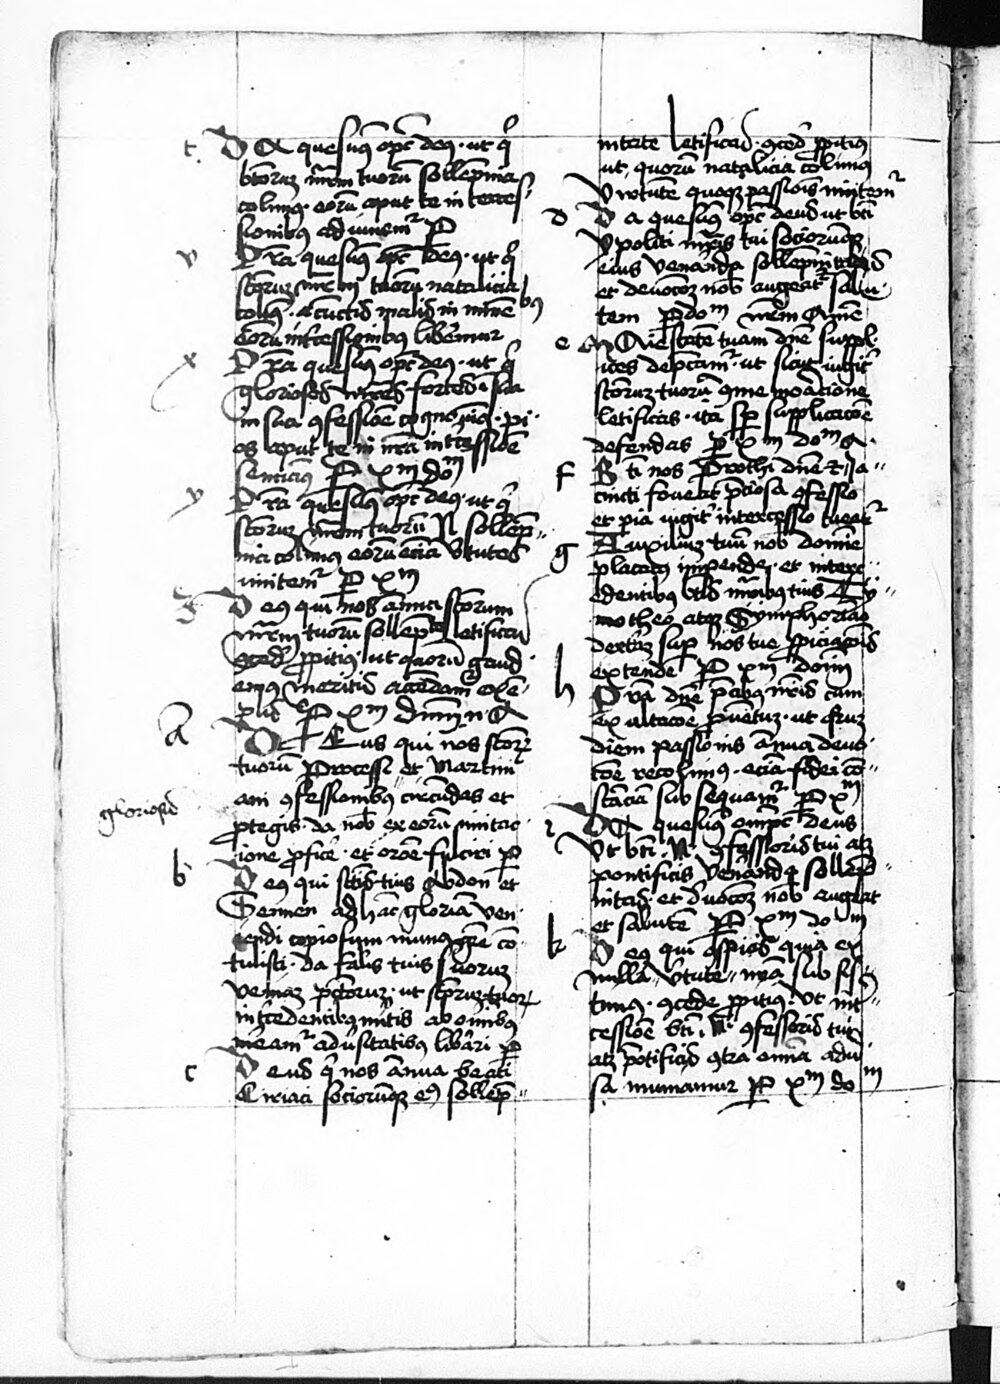 t. Da quesumus opc deus ut q
btorum mrm tuorum sollempnia
colimus eorum aput te intercess
sionibus adiuuemur P
v Pra quesumus opc deus ut q
scorum mrm tuorum natalicia
colimus a cunctis malis imminentibus
eorum intercessionibus liberemur
x Pra quesumus opc deus ut q
gloriosos mres fortes in sua
confessione cognouimus pi
os aput te in nra intercessione
senciamus P xm dom
y Pra quesumus opc deus ut q
scorum mrm tuorum N sollemp
nia colimus eorum eciam vtutes
imitemur P xm
z Deus qui nos annua scorum
mrm tuorum sollempte letificas
concede propitius ut quorum gaud
emus meritis accendamur exem
plis P xm dnm n
A Deus qui nos scorum
tuorum Processi et Martini
ani confessionibus circumdas et
gloriosis
protegis da nob ex eorum imitac
ione proficere et oracione fulciri P
b Deus qui scis tuis Abdon et
Sennen ad hanc gloriam ven
iendi copiosum munus gre con
tulisti da famulis tuis suorum
veniam pctorum ut scorum tuorum
intercedentibus meritis ab omnibus
mereamur aduersitatibus liberari P
c Deus q nos annua beati
Ciriaci sociorumque eius sollemp
nitate letificas concede propitius
ut quorum natalicia colimus
virtutem quoque passionis imitemur
d Da quesumus opc deus ut bti
Ypoliti mris tui sociorumque
eius veneranda sollempnitas
et deuocionem nob augeat et salu
tem P dom nrm Amen
e Maiestatem tuam dne suppli
ces deprecamur ut sicut iugiter
scorum tuorum commemoracione
letificas ita semper supplicacione
defendas P xm dom
f Bti nos Prothi dne et Ia
cincti foueat preciosa confessio
et pia iugiter intercessio tueatur
g Auxilium tuum nob domine
placatus impende et interc
edentibus btis mribus tuis Ty
motheo atque Symphoriano
dexteram super nos tue propiciacionis
extende P xm dom
h Pra dne precibus nris cum
exultacione prouentum ut quorum
diem passionis annua deuo
cione recolimus eciam fidei con
stanciam subsequamur P xm
i Da quesumus omps deus
ut bti N confessoris tui atque
pontificis veneranda sollemp
nitas et deuocionem nob augeat
et salutem P xm dom
k Deus qui conspicis quia ex
nulla vtute nra subsis
timus concede propitius ut int
cessione bti N confessoris tui
atque pontificis contra omnia aduer
sa muniamur P xm dom